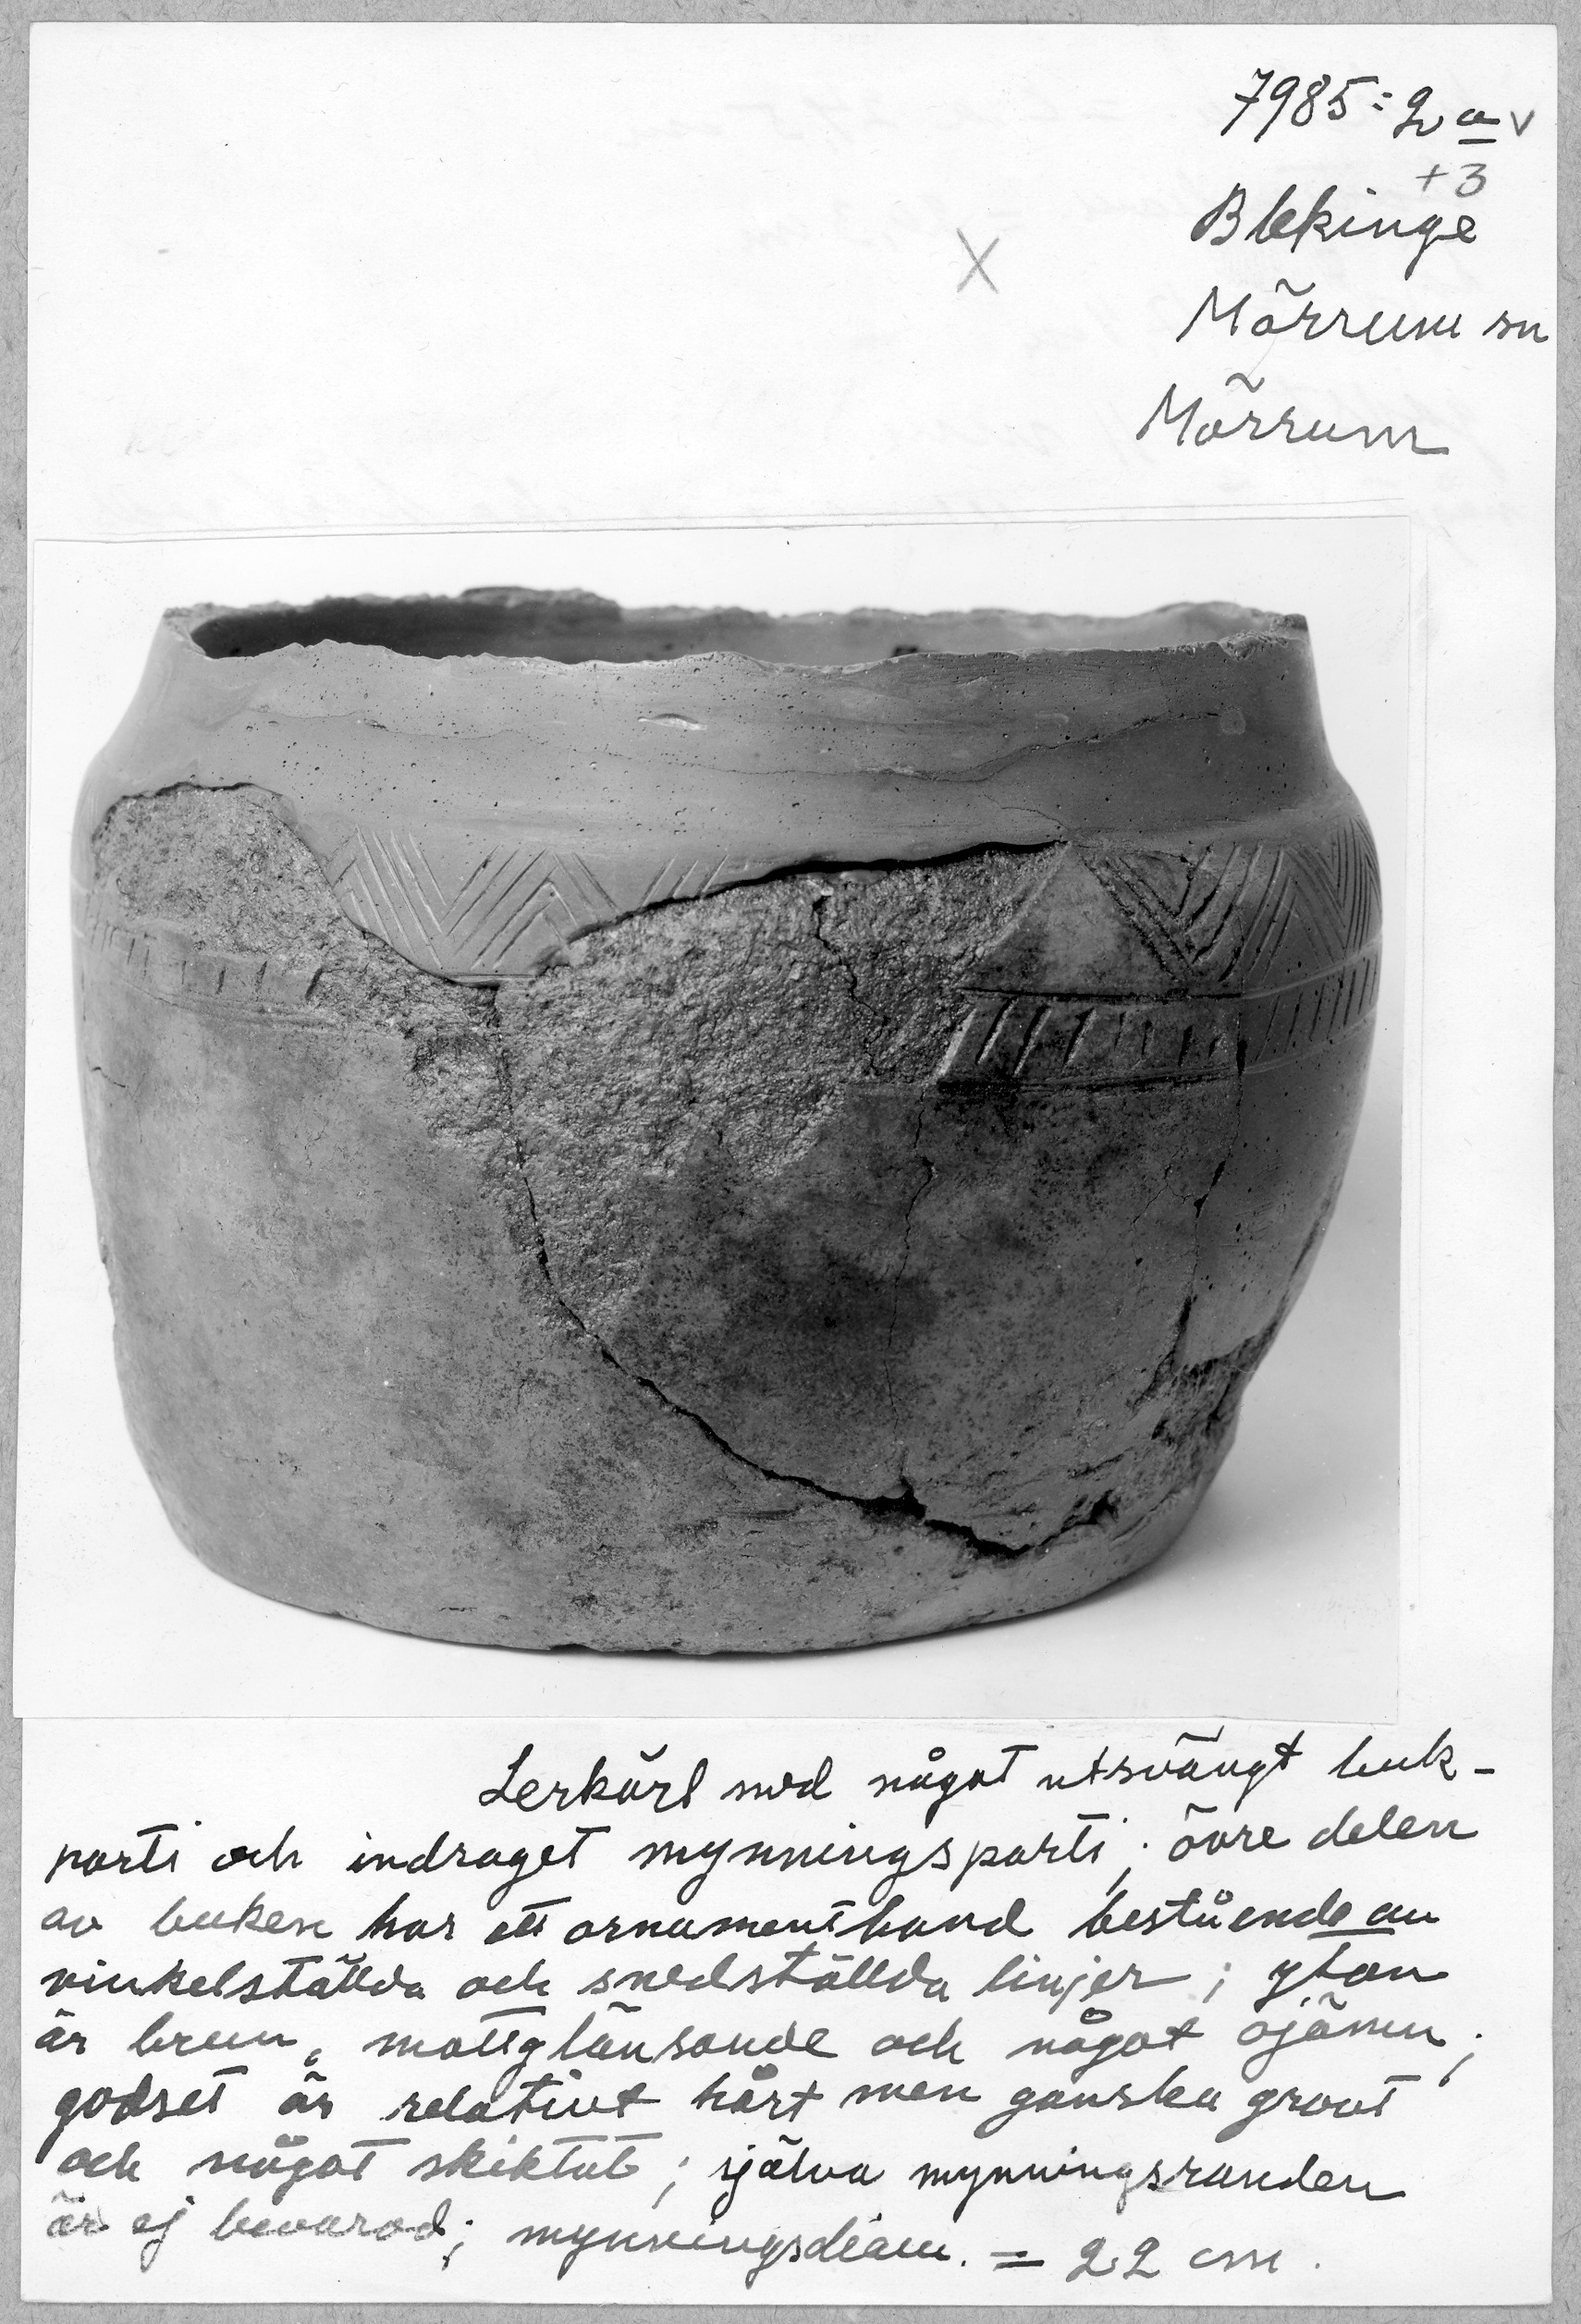 7985:2 a v
+3
Blekinge
X
Mörrum sn
Mörrum
Lerkärl med något utsvängt buk-
parti och indraget mynningsparti; övre delen
av buken har ett ornamentband bestående av
vinkelställda och snedställda linjer; ytan
är brun, mattglänsande och något ojämn;
godset är relativt hårt men ganska grovt
och något skiktat; själva mynningsranden
är ej bevarad; mynningsdiam. = 22 cm.